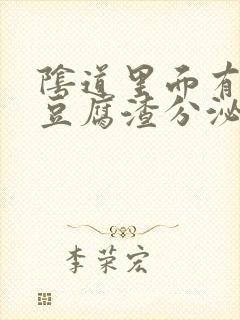 陰道里而有
豆腐渣分泌
李荣宏